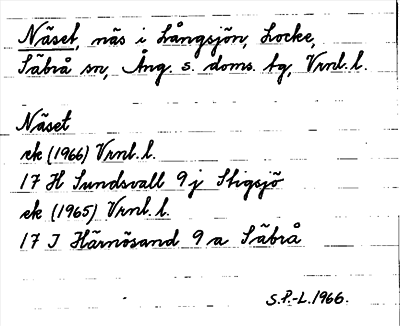 Näset, näs i Långsjön, Locke,
Säbrå sn, Ång. s. doms. tg, Vrnl. l.
Näset
ek (1966) Vrnl. l.
17 H Sundsvall 9j Stigsjö
ek (1965) Vrnl. l.
17 I Härnösand 9a Säbrå
S.P.-L. 1966.